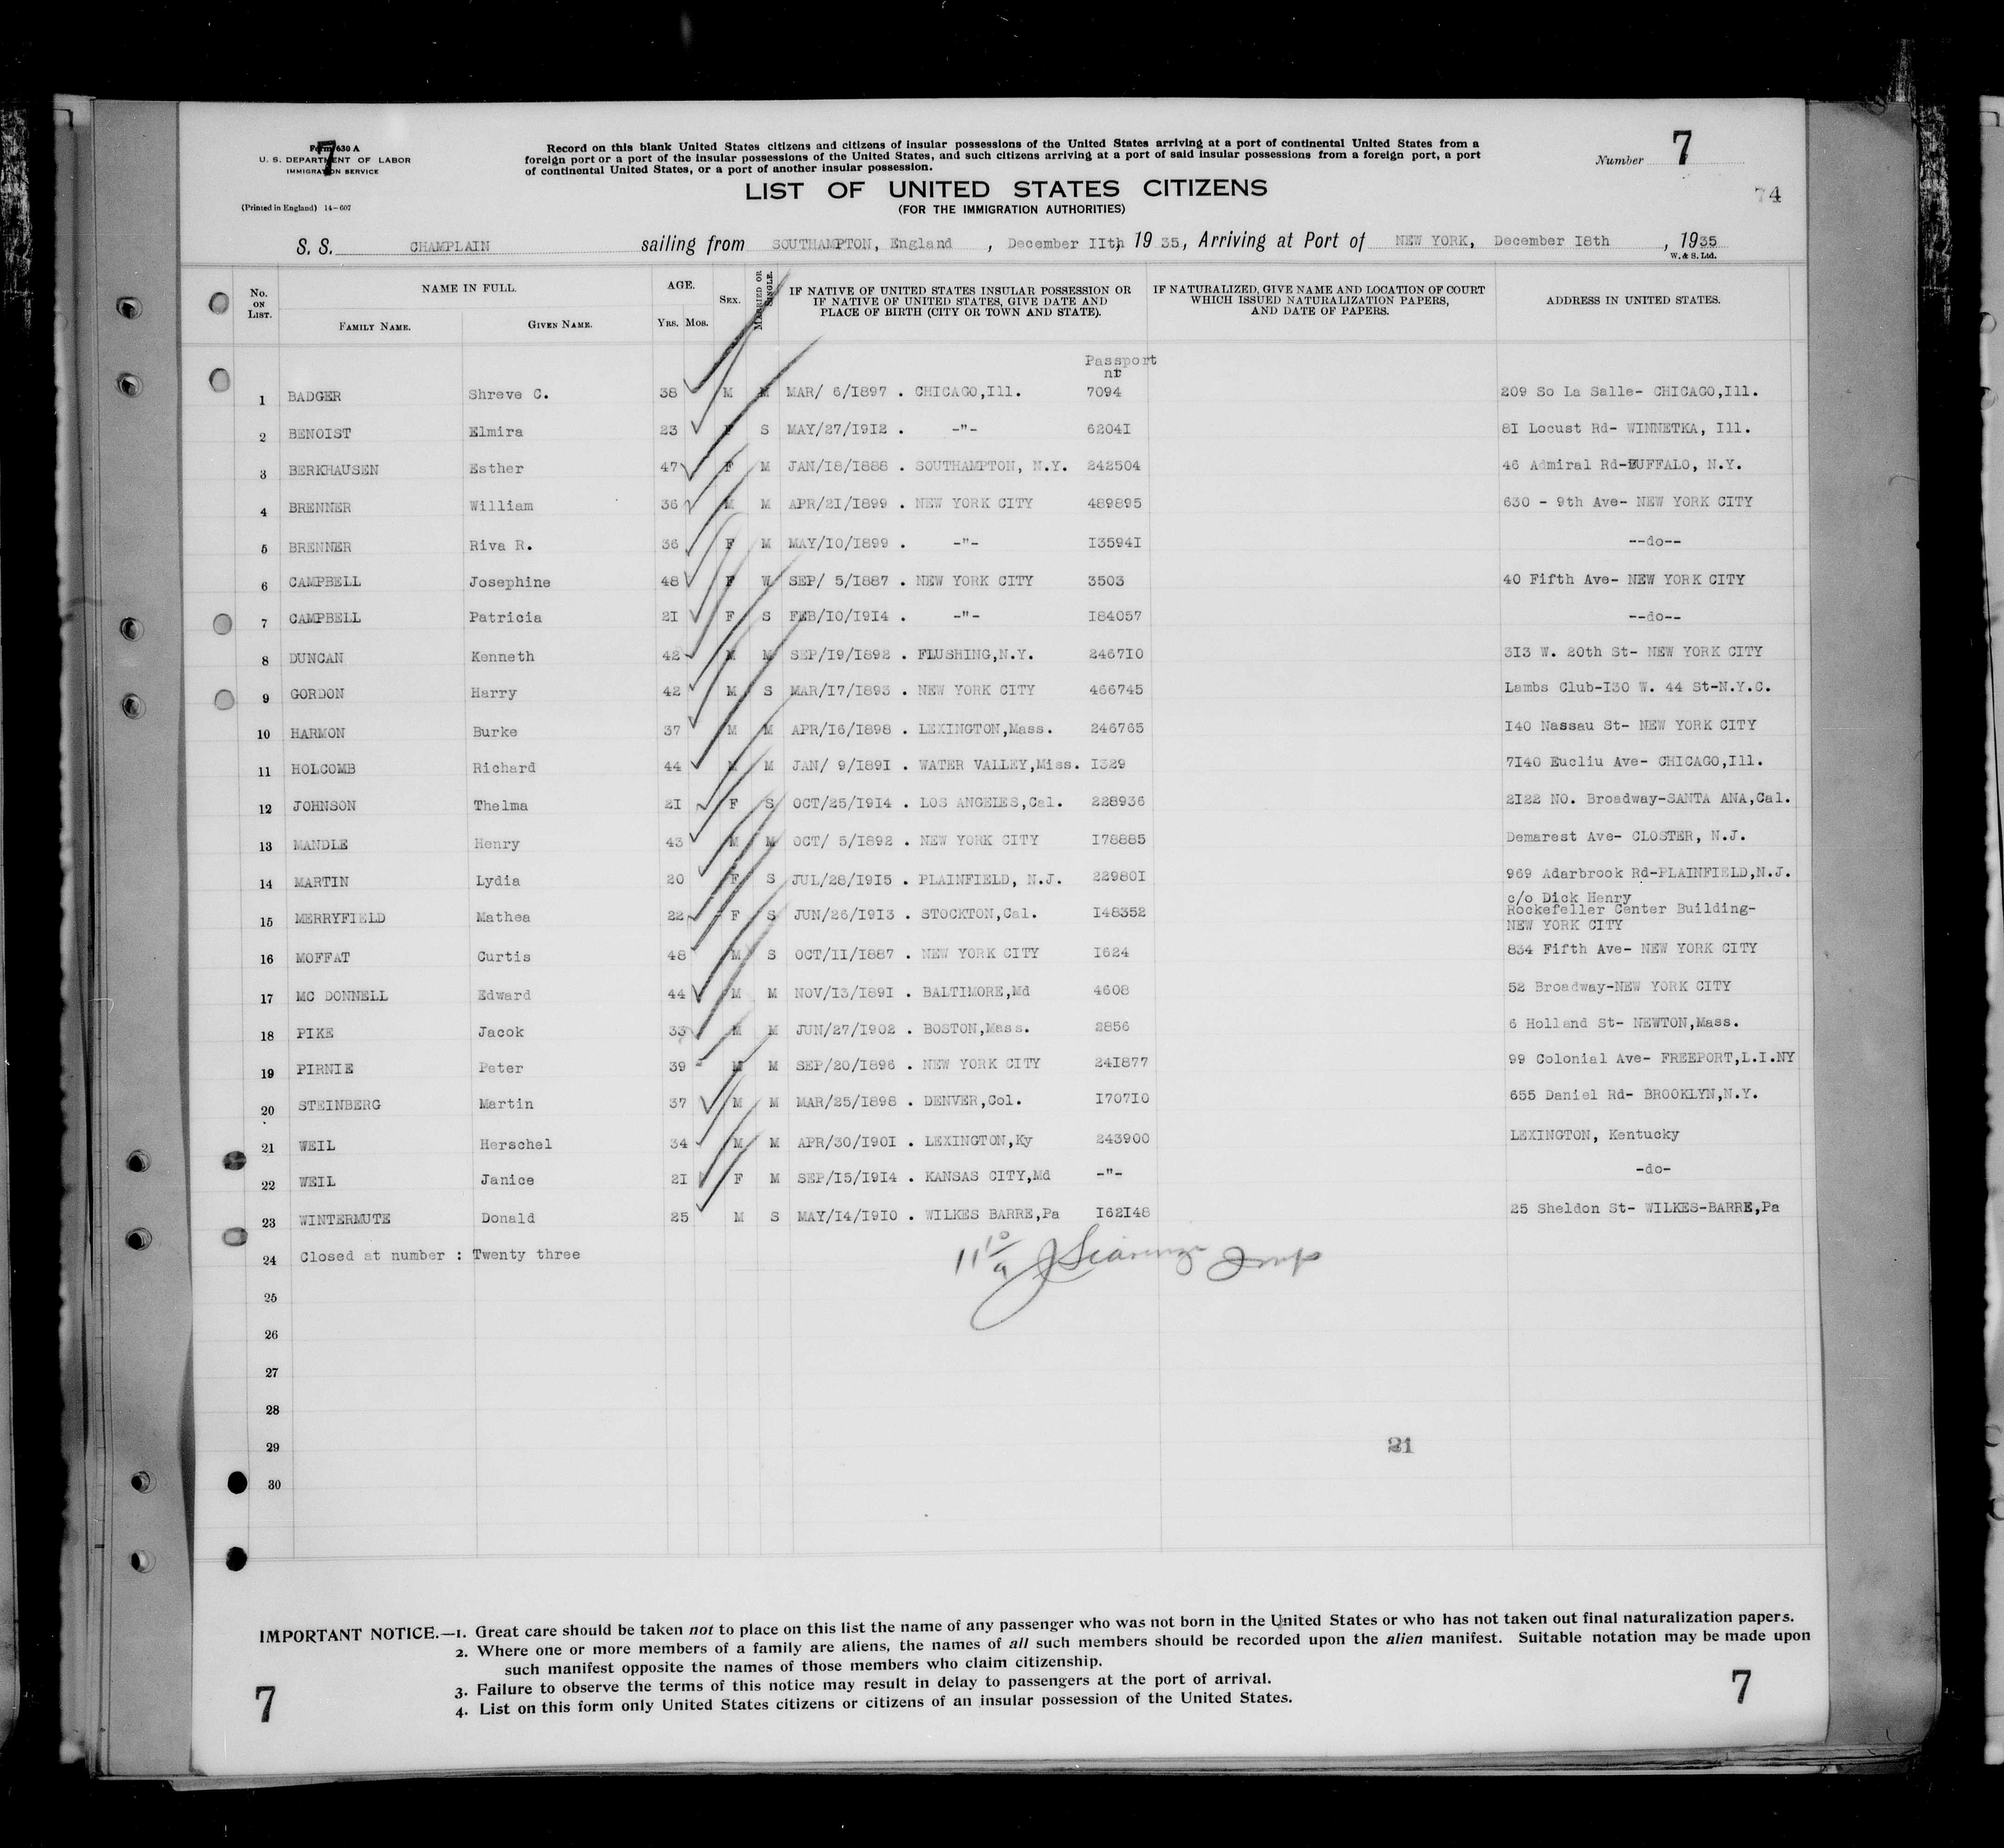 Form 630 A
7
U. S. DEPARTMENT OF LABOR
IMMIGRATION SERVICE
(Printed in England) 14-607
Record on this blank United States citizens and citizens of insular possessions of the United States arriving at a port of continental United States from a
foreign port or a port of the insular possessions of the United States, and such citizens arriving at a port of said insular possessions from a foreign port, a port
of continental United States, or a port of another insular possession.
Number 7
LIST OF UNITED STATES CITIZENS
(FOR THE IMMIGRATION AUTHORITIES)
74
S. S. CHAMPLAIN sailing from SOUTHAMPTON, England, December IIth, 1935, Arriving at Port of NEW YORK, December I8th, 1935
W. & S. Ltd.
No. ON LIST. NAME IN FULL. FAMILY NAME. GIVEN NAME. AGE. YRS. MOS. SEX. MARRIED OR SINGLE. IF NATIVE OF UNITED STATES INSULAR POSSESSION OR IF NATIVE OF UNITED STATES, GIVE DATE AND PLACE OF BIRTH (CITY OR TOWN AND STATE). IF NATURALIZED, GIVE NAME AND LOCATION OF COURT WHICH ISSUED NATURALIZATION PAPERS, AND DATE OF PAPERS. ADDRESS IN UNITED STATES.
Passport
nr
1 BADGER Shreve C. 38 M M MAR/ 6/I897 . CHICAGO,Ill. 7094 209 So La Salle- CHICAGO,Ill.
2 BENOIST Elmira 23 F S MAY/27/I9I2 . -"- 6204I 8I Locust Rd- WINNETKA, Ill.
3 BERKHAUSEN Esther 47 F M JAN/I8/I888 . SOUTHAMPTON, N.Y. 242504 46 Admiral Rd-BUFFALO, N.Y.
4 BRENNER William 36 M M APR/2I/I899 . NEW YORK CITY 489895 630 - 9th Ave- NEW YORK CITY
5 BRENNER Riva R. 36 F M MAY/I0/I899 . -"- I3594I --do--
6 CAMPBELL Josephine 48 F W SEP/ 5/I887 . NEW YORK CITY 3503 40 Fifth Ave- NEW YORK CITY
7 CAMPBELL Patricia 2I F S FEB/I0/I9I4 . -"- I84057 --do--
8 DUNCAN Kenneth 42 M M SEP/I9/I892 . FLUSHING,N.Y. 2467I0 3I3 W. 20th St- NEW YORK CITY
9 GORDON Harry 42 M S MAR/I7/I893 . NEW YORK CITY 466745 Lambs Club-I30 W. 44 St-N.Y.C.
10 HARMON Burke 37 M M APR/I6/I898 . LEXINGTON,Mass. 246765 I40 Nassau St- NEW YORK CITY
11 HOLCOMB Richard 44 M M JAN/ 9/I89I . WATER VALLEY,Miss. I329 7I40 Eucliu Ave- CHICAGO,Ill.
12 JOHNSON Thelma 2I F S OCT/25/I9I4 . LOS ANGELES,Cal. 228936 2I22 NO. Broadway-SANTA ANA,Cal.
13 MANDLE Henry 43 M M OCT/ 5/I892 . NEW YORK CITY I78885 Demarest Ave- CLOSTER, N.J.
14 MARTIN Lydia 20 F S JUL/28/I9I5 . PLAINFIELD, N.J. 22980I 969 Adarbrook Rd-PLAINFIELD,N.J.
15 MERRYFIELD Mathea 22 F S JUN/26/I9I3 . STOCKTON,Cal. I48352 c/o Dick Henry
Rockefeller Center Building-
NEW YORK CITY
16 MOFFAT Curtis 48 M S OCT/II/I887 . NEW YORK CITY I624 834 Fifth Ave- NEW YORK CITY
17 MC DONNELL Edward 44 M M NOV/I3/I89I . BALTIMORE,Md 4608 52 Broadway-NEW YORK CITY
18 PIKE Jacok 33 M M JUN/27/I902 . BOSTON,Mass. 2856 6 Holland St- NEWTON,Mass.
19 PIRNIE Peter 39 M M SEP/20/I896 . NEW YORK CITY 24I877 99 Colonial Ave- FREEPORT,L.I.NY
20 STEINBERG Martin 37 M M MAR/25/I898 . DENVER,Col. I707I0 655 Daniel Rd- BROOKLYN,N.Y.
21 WEIL Herschel 34 M M APR/30/I90I . LEXINGTON,Ky 243900 LEXINGTON, Kentucky
22 WEIL Janice 2I F M SEP/I5/I9I4 . KANSAS CITY,Md -"- -do-
23 WINTERMUTE Donald 25 M S MAY/I4/I9I0 . WILKES BARRE,Pa I62I48 25 Sheldon St- WILKES-BARRE,Pa
24 Closed at number : Twenty three
25
26
27
28
29
21
30
IMPORTANT NOTICE.—1. Great care should be taken not to place on this list the name of any passenger who was not born in the United States or who has not taken out final naturalization papers.
2. Where one or more members of a family are aliens, the names of all such members should be recorded upon the alien manifest. Suitable notation may be made upon
such manifest opposite the names of those members who claim citizenship.
3. Failure to observe the terms of this notice may result in delay to passengers at the port of arrival.
4. List on this form only United States citizens or citizens of an insular possession of the United States.
7
7